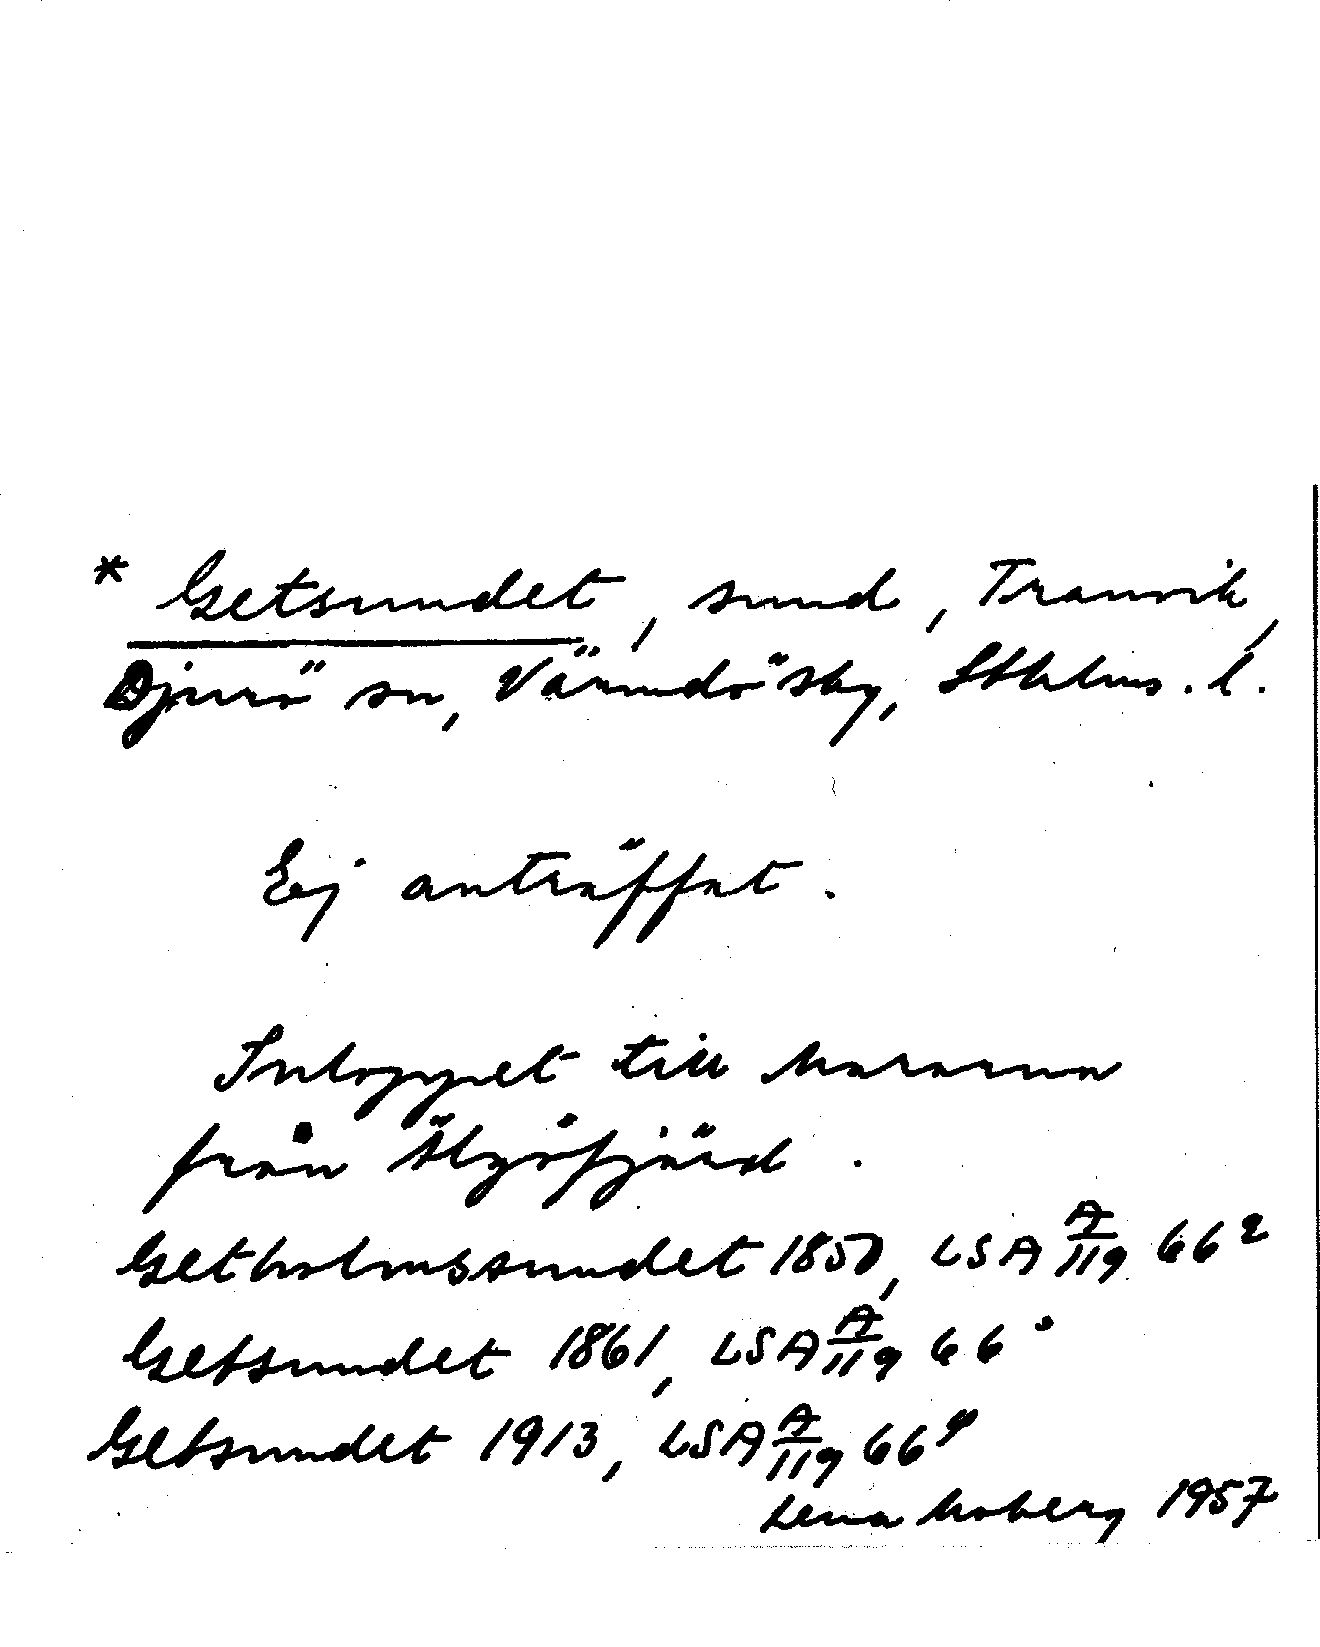 * Getsundet, sund, Tranvik,
Djurö sn, Värmdö sky, Sthlms. l.
Ej anträffat.
Inloppet till Mararna
från Älgöfjärd.
Getholmssundet 1850, LSA A/119 66²
Getsundet 1861, LSA A/119 66
Getsundet 1913, LSA A/119 66
Lena Moberg 1957